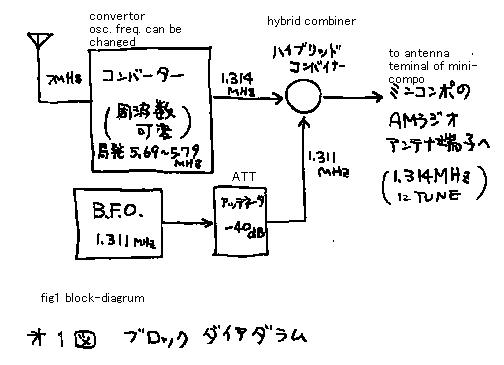 convertor
osc. freq. can be
changed
hybrid combiner
ハイブリッド
コンバイナー
to antenna
teminal of mini-
compo
7MHz
コンバーター
(周波数
可変)
局発 5.69~5.79
MHz
1.314
MHz
ミニコンポの
AMラジオ
アンテナ端子へ
(1.314MHz
にTUNE)
1.311
MHz
ATT
アッテネータ
-40
dB
B.F.O.
1.311MHz
fig1 block-diagrum
オ1図 ブロック ダイアグラム